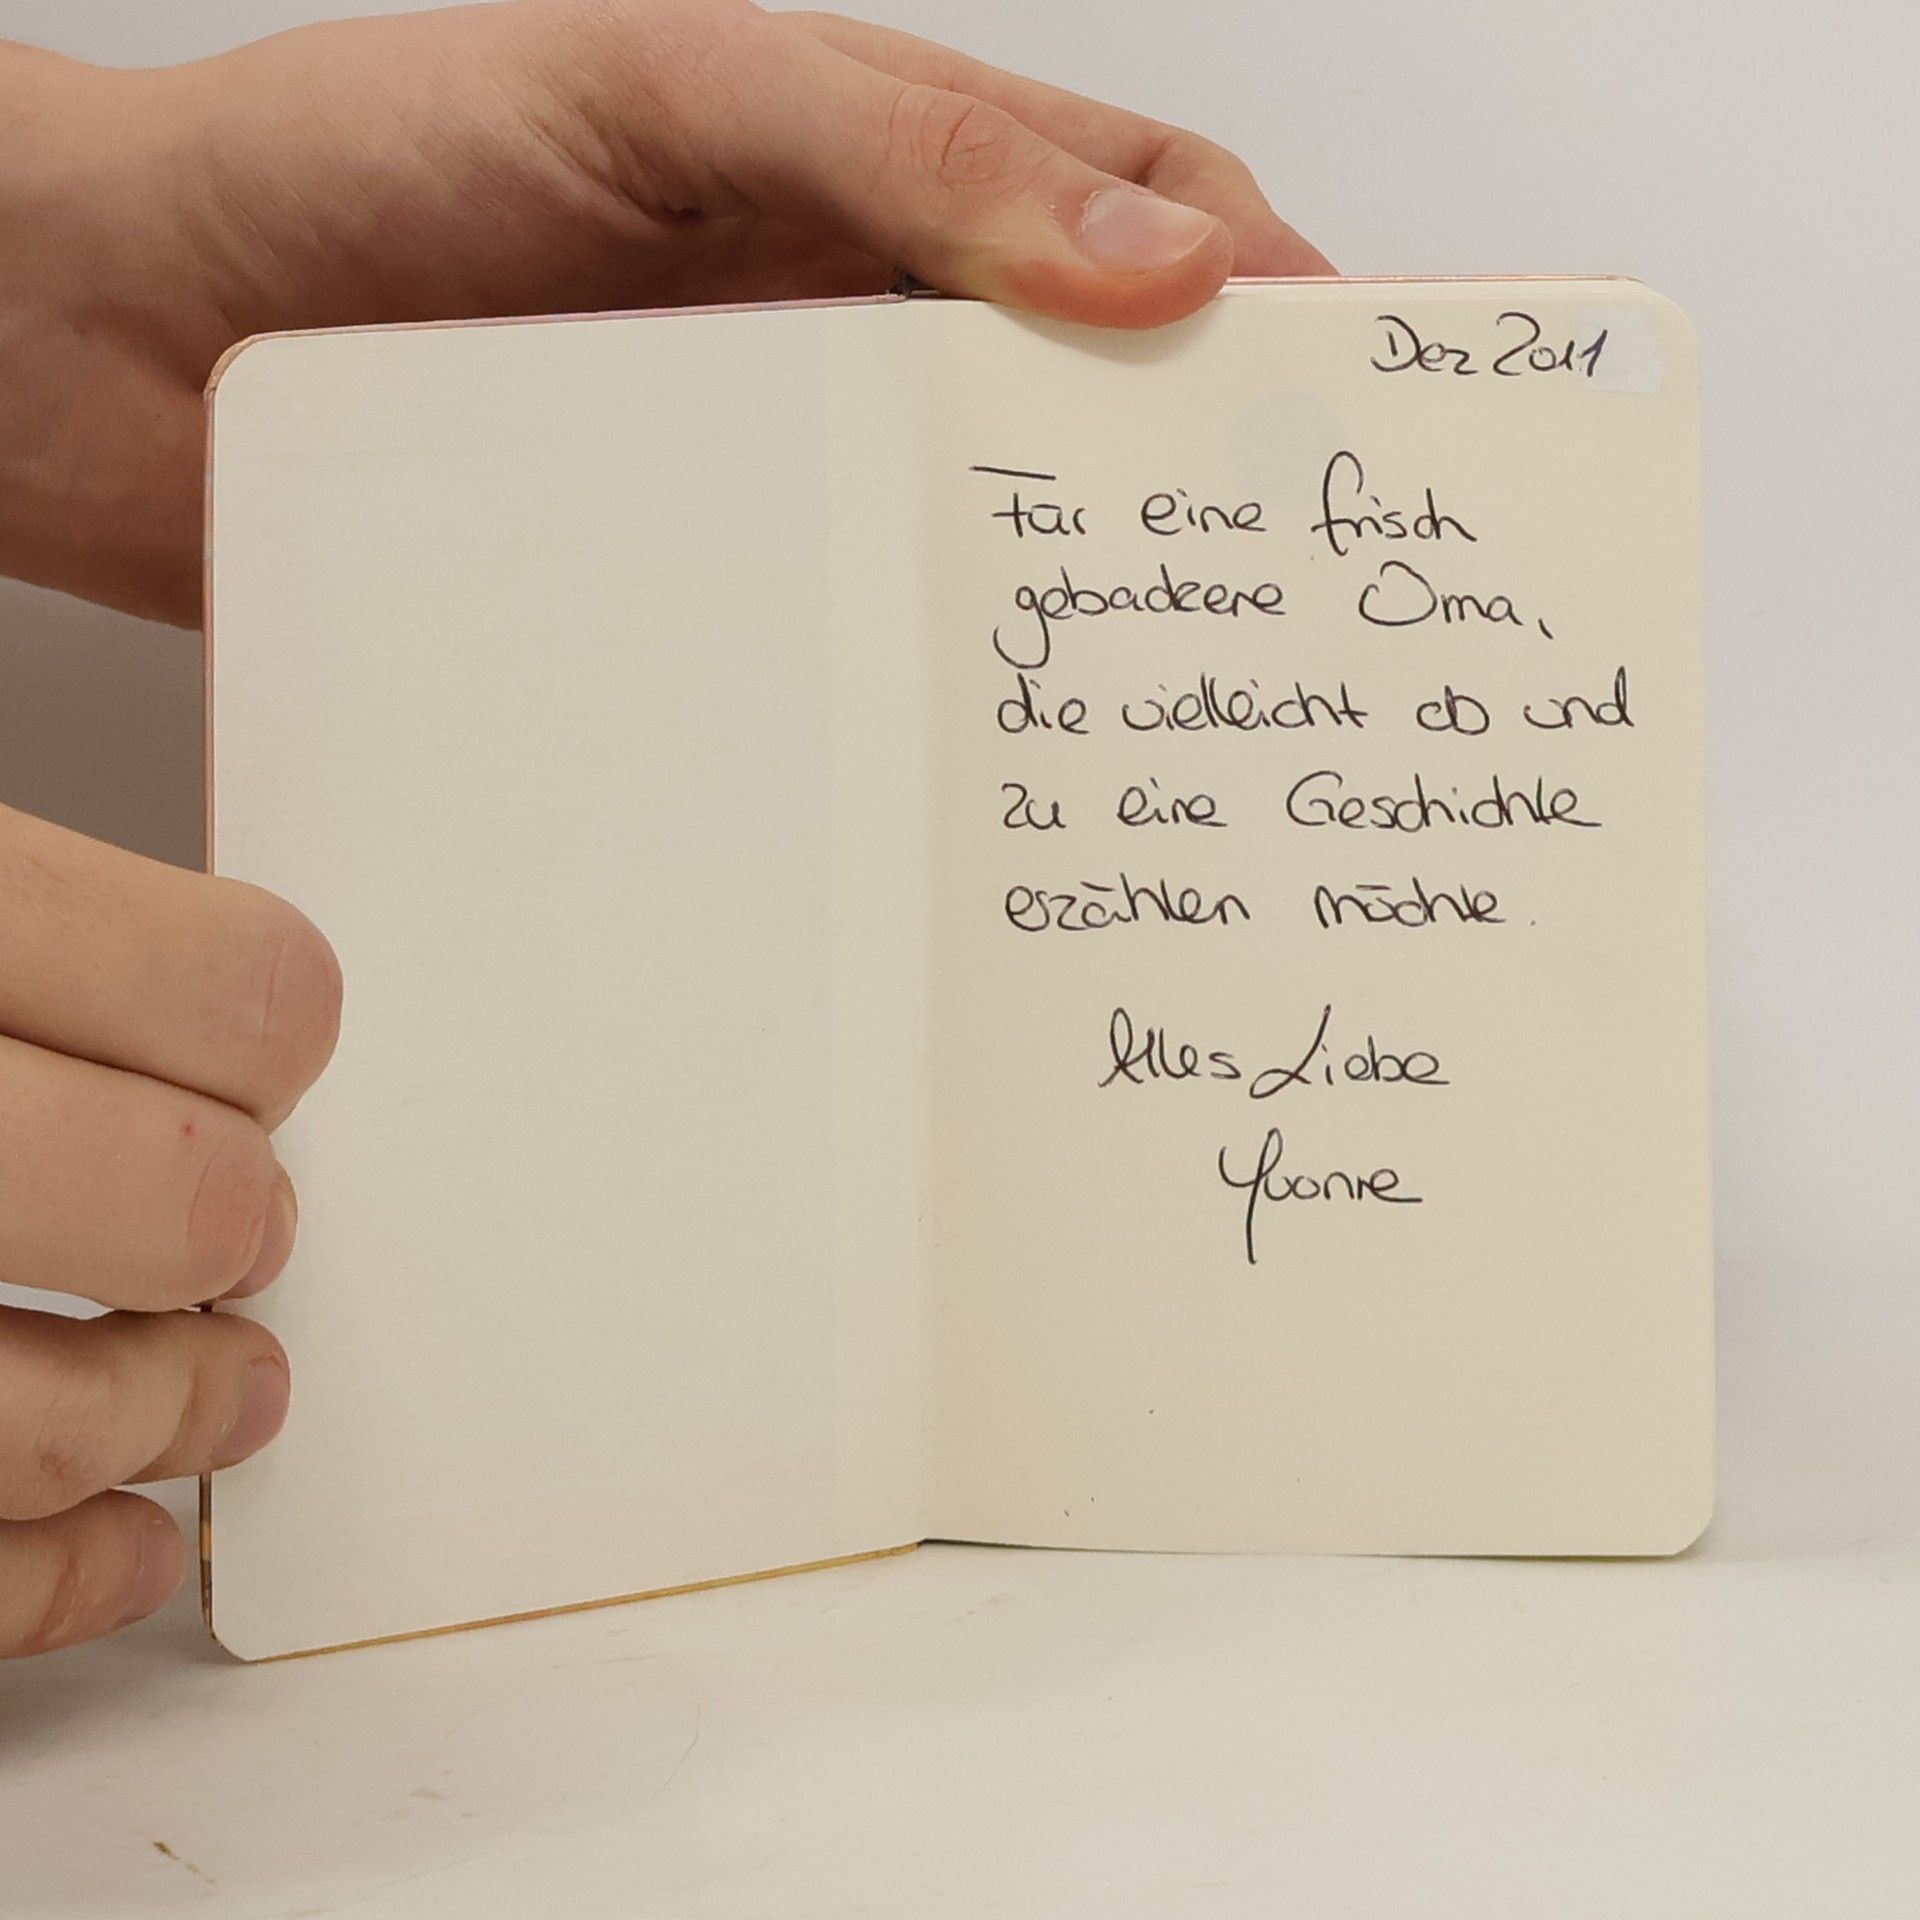 Dez 2011
Für eine frisch
gebackene Oma,
die vielleicht ab und
zu eine Geschichte
erzählen möchte.
Alles Liebe
Yvonne